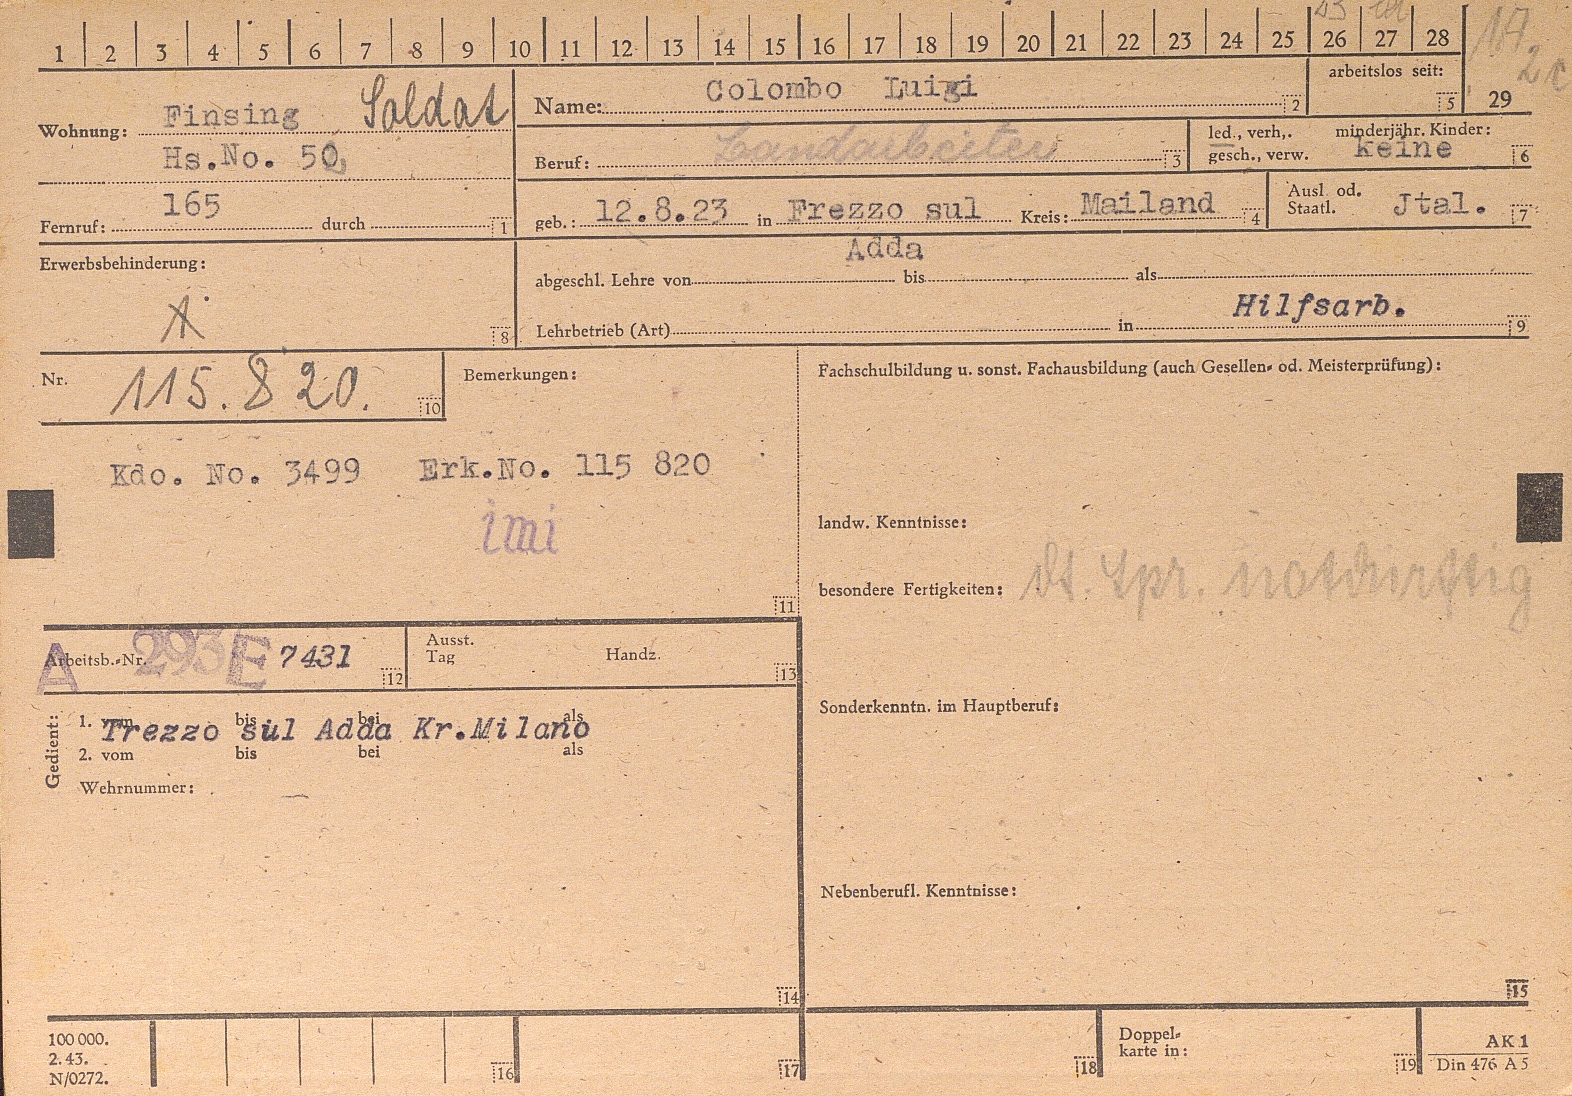 1 2 3 4 5 6 7 8 9 10 11 12 13 14 15 16 17 18 19 20 21 22 23 24 25 26 27 28
Wohnung: Finsing Soldat
Hs.No. 50
Fernruf: 165 durch 1
Name: Colombo Luigi 2
arbeitslos seit: 5
29
Beruf: Landarbeiter 3
led., verh,. minderjähr. Kinder:
gesch., verw. keine 6
geb.: 12.8.23 in Frezzo sul Kreis: Mailand 4
Adda
Ausl. od.
Staatl. Jtal. 7
Erwerbsbehinderung:
8
abgeschl. Lehre von bis als
Hilfsarb.
Lehrbetrieb (Art) in 9
Nr. 115.820. 10
Bemerkungen:
Kdo. No. 3499 Erk.No. 115 820
imi
11
Fachschulbildung u. sonst. Fachausbildung (auch Gesellen- od. Meisterprüfung):
landw. Kenntnisse:
besondere Fertigkeiten: dt. Spr. notdürftig
Sonderkenntn. im Hauptberuf:
Nebenberufl. Kenntnisse:
15
A Arbeitsb.-Nr. 293 E 7431 12
Ausst.
Tag Handz. 13
Gedient:
1. vom bis bei als
Trezzo sul Adda Kr.Milano
2. vom bis bei als
Wehrnummer:
14
100 000.
2. 43.
N/0272.
16 17 18
Doppel-
karte in: 19
AK 1
Din 476 A 5